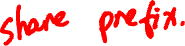 share prefix.